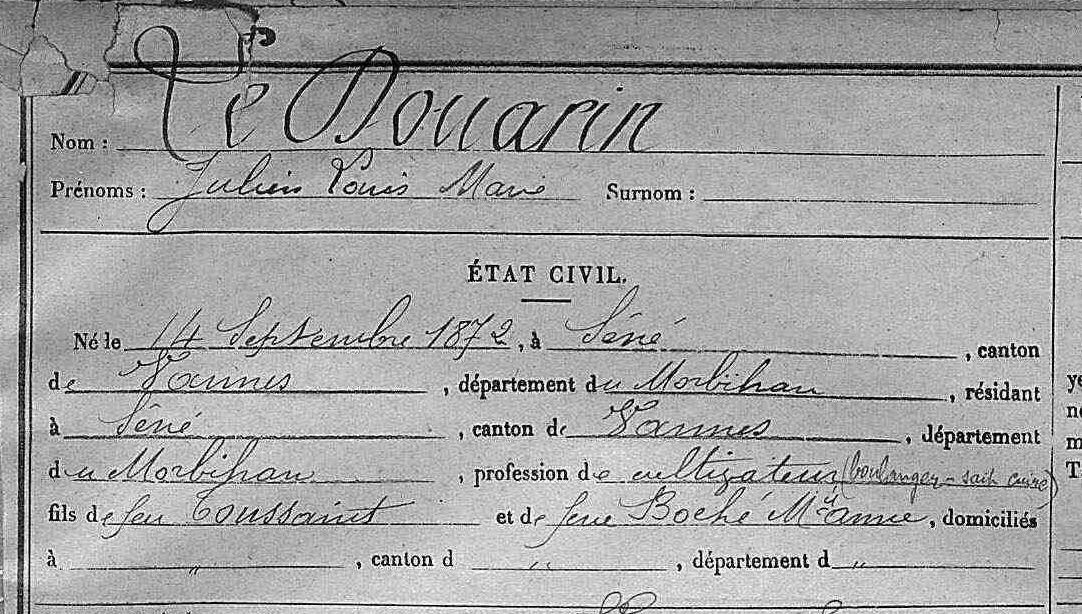 Nom : Le Douarin
Prénoms : Julien Louis Marie Surnom :
ÉTAT CIVIL.
Né le 14 Septembre 1872, à Séné, canton
de Vannes, département du Morbihan, résidant
à Séné, canton de Vannes, département
du Morbihan, profession de cultivateur (boulanger - sait cuire)
fils de feu Toussaint et de feue Boché Mie Anne, domiciliés
à „, canton d „, département d „